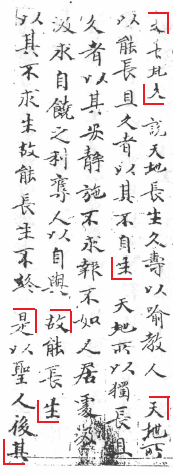 天長地久 說天地長生久壽以喻教人 天地所
以能長且久者以其不自生 天地所以獨長且
久者以其安靜施不求報不如人居處
汲求自饒之利奪人以自與 故能長生
以其不求生故能長生不終 是以聖人後其